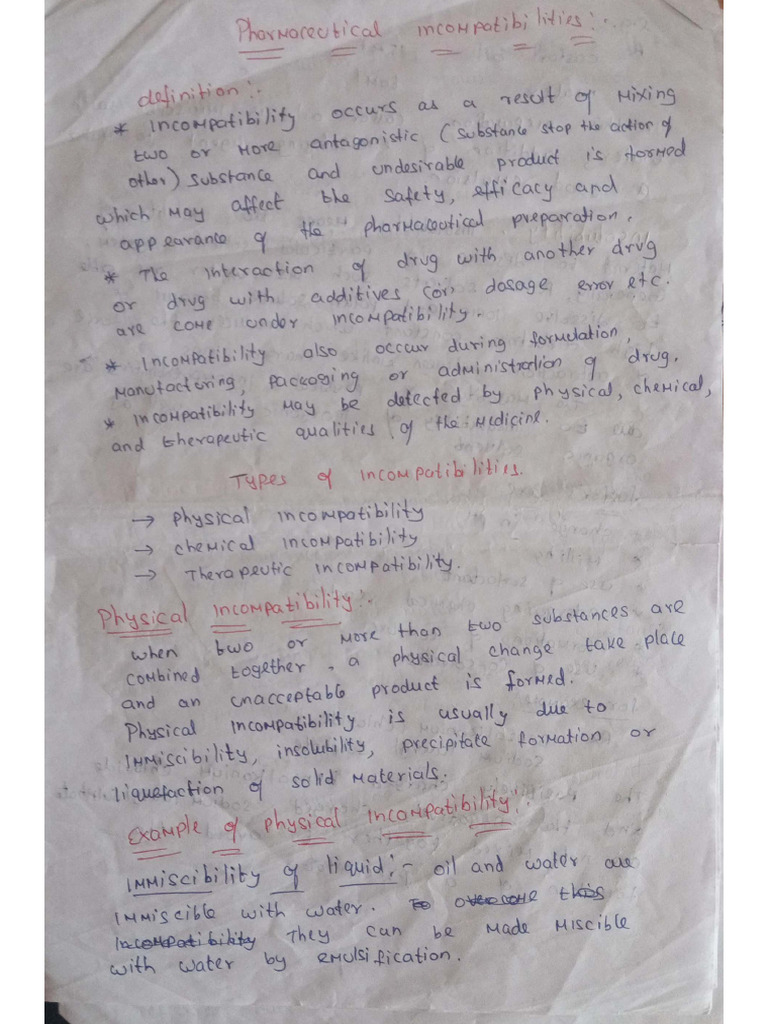 Pharmaceutical incompatibilities:-
definition:-
* Incompatibility occurs as a result of mixing
two or more antagonistic (substance stop the action of
other) substance and undesirable product is formed
which may affect the safety, efficacy and
appearance of the pharmaceutical preparation.
* The interaction of drug with another drug
or drug with additives (or) dosage error etc.
are come under incompatibility.
* Incompatibility also occur during formulation,
manufacturing, packaging or administration of drug.
* Incompatibility may be detected by physical, chemical,
and therapeutic qualities of the medicine.
Types of incompatibilities.
→ Physical incompatibility
→ chemical incompatibility
→ Therapeutic incompatibility.
Physical incompatibility:-
when two or more than two substances are
combined together. a physical change take place
and an unacceptable product is formed.
Physical incompatibility is usually due to
immiscibility, insolubility, precipitate formation or
liquefaction of solid materials.
Example of physical incompatibility:-
Immiscibility of liquid:- oil and water are
immiscible with water. To overcome this
incompatibility They can be made miscible
with water by emulsification.